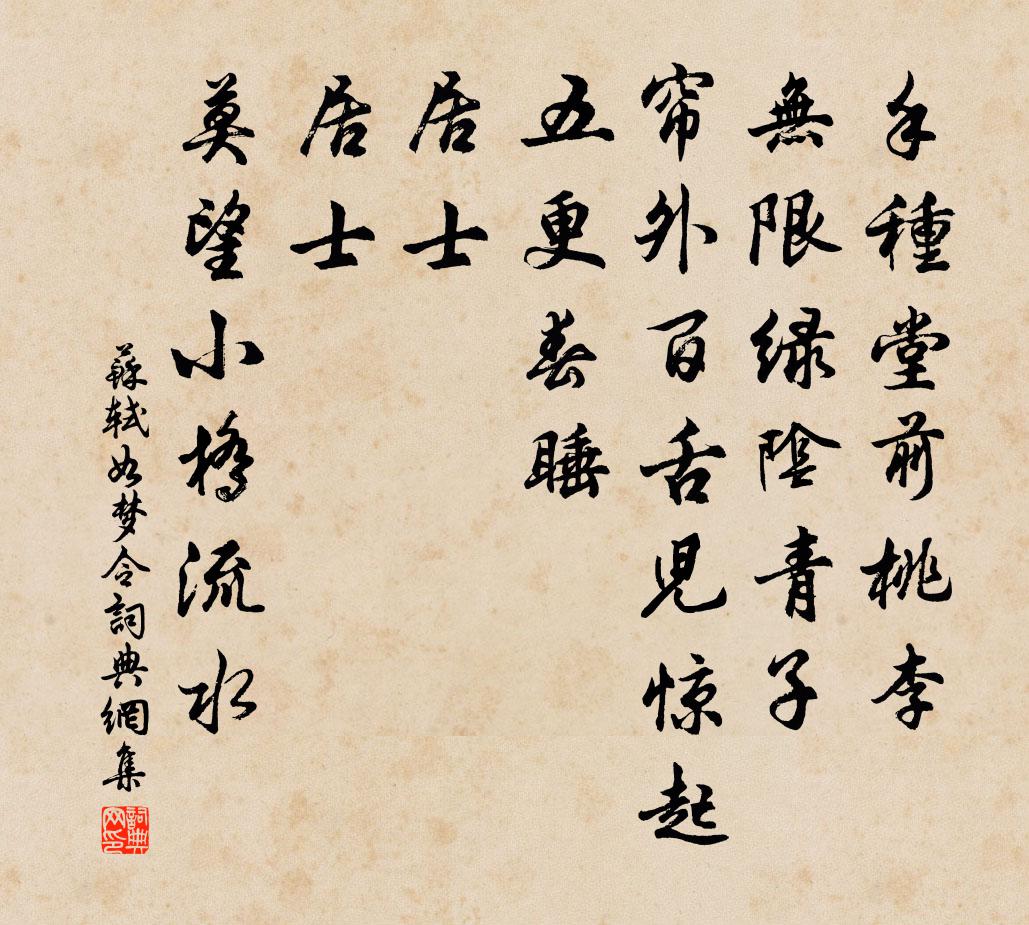 手種堂前桃李
無限緑陰青子
帘外百舌児惊起
五更春睡
居士
居士
莫望小橋流水
蘇軾如梦令詞典網集
詞典网印